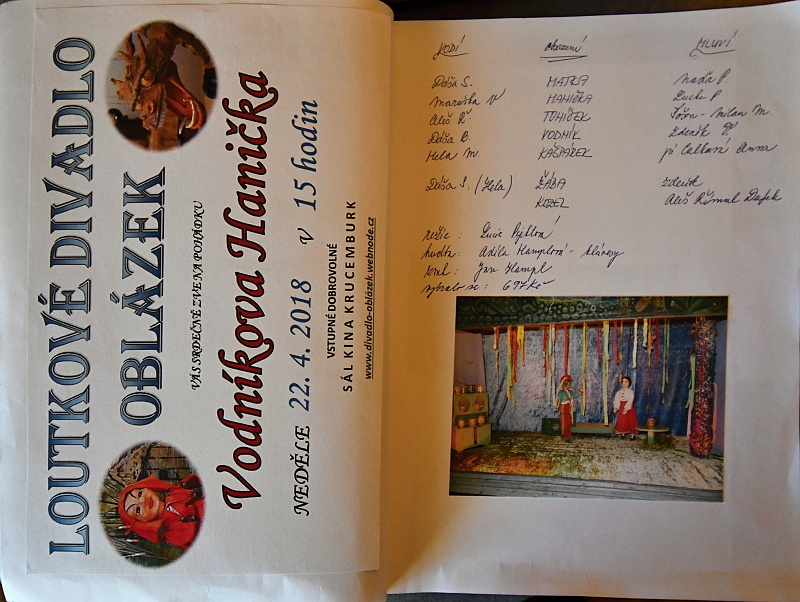 LOUTKOVÉ DIVADLO
OBLÁZEK
VÁS SRDEČNĚ ZVE NA POHÁDKU
Vodníkova Hanička
NEDĚLE 22. 4. 2018 v 15 hodin
VSTUPNÉ DOBROVOLNÉ
SÁL KINA KRUCEMBURK
www.divadlo-oblázek.webnode.cz
VODÍ Obsazení MLUVÍ
Dáša S. MATKA Naďa P.
Maruška V HANIČKA Lucka P
Aleš Ř. TONÍČEK Milan M.
Dáša B. VODNÍK Zdeněk
Hela M. KAŠPÁREK Anna
Dáša S. (Hela) ŽÁBA Zdeněk
KOZEL Aleš
režie: Lucie
hudba: Adéla Hamplová - klávesy
Jan Hampl
vybralo se: 697 Kč